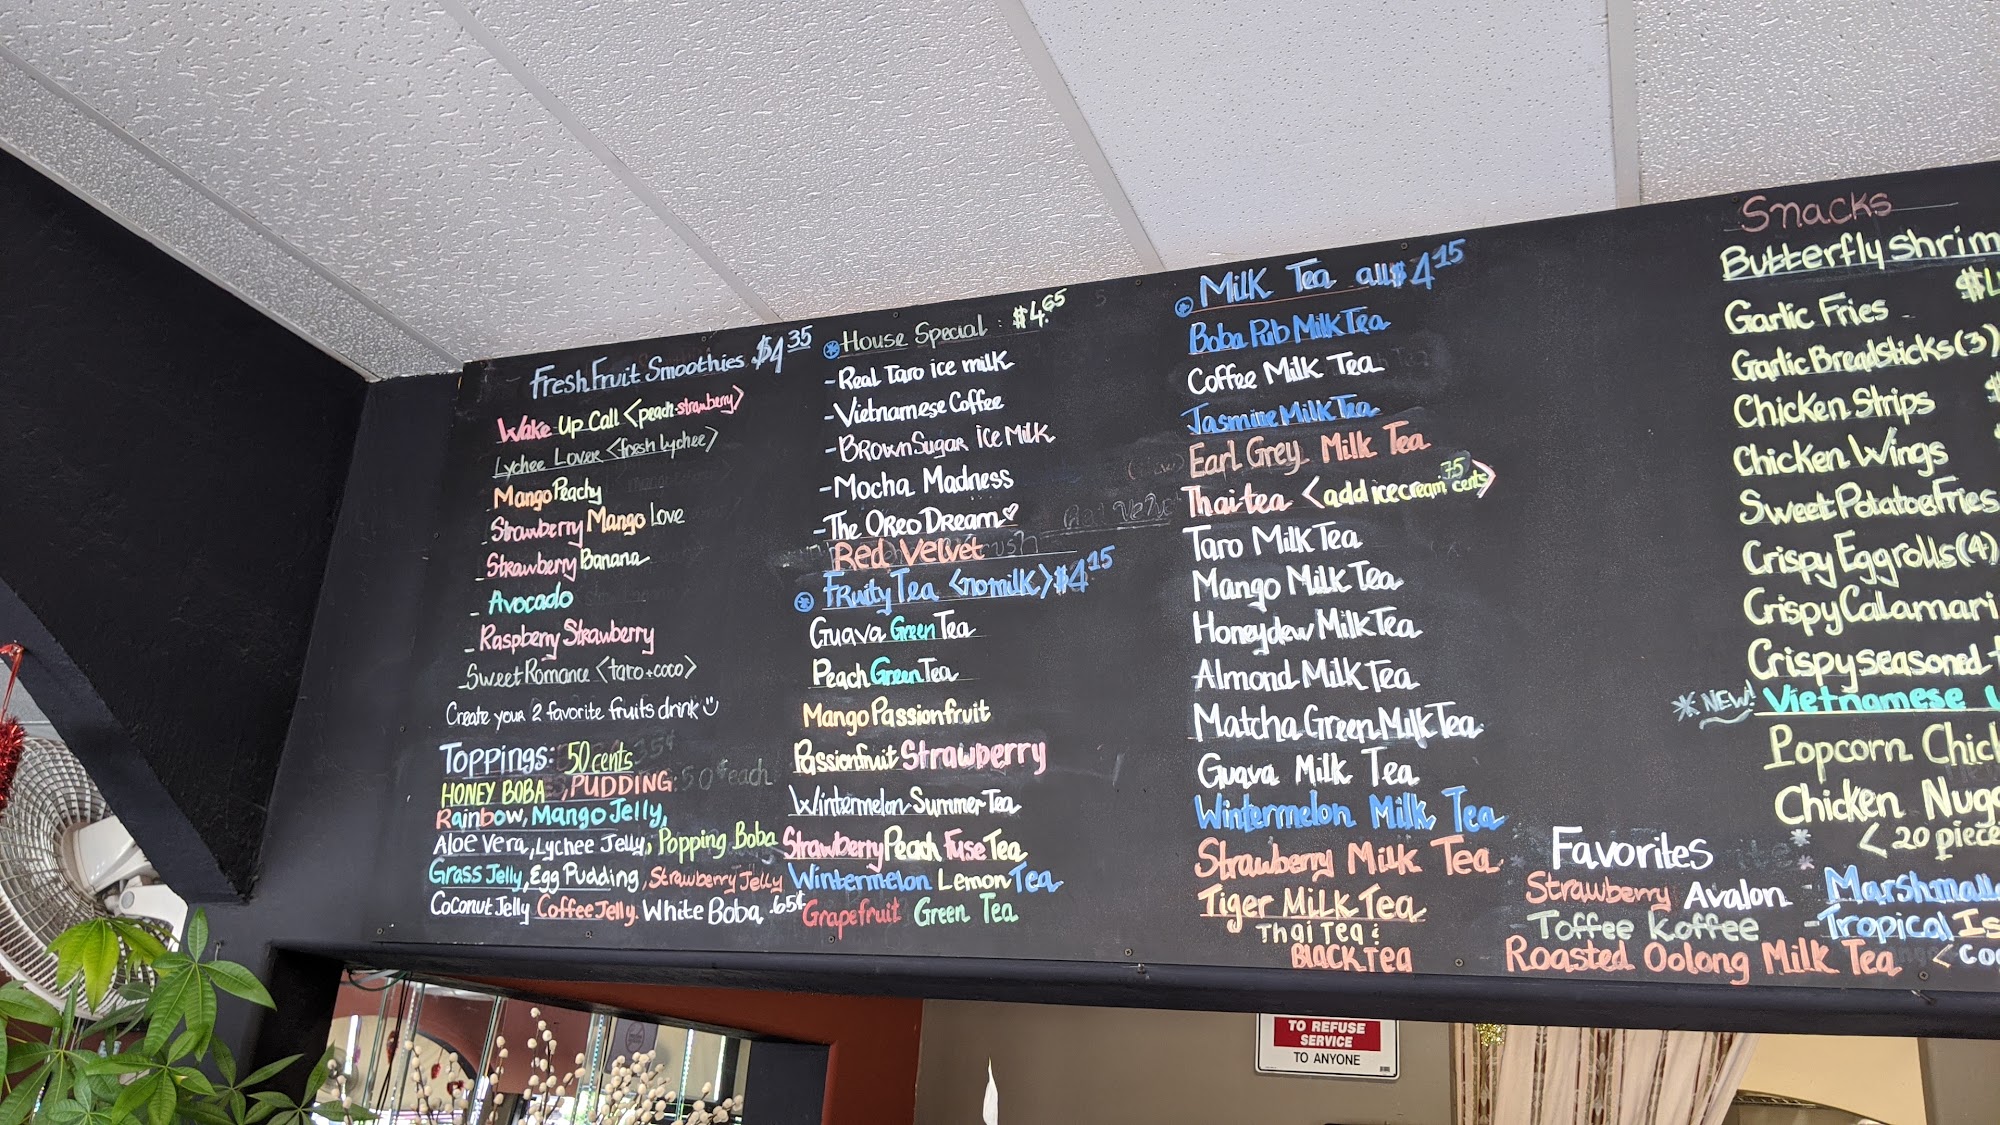 Fresh Fruit Smoothies $4.35
Wake Up Call <peach-strawberry>
Lychee Lover <fresh lychee>
Mango Peachy
Strawberry Mango Love
Strawberry Banana
- Avocado
- Raspberry Strawberry
Sweet Romance <taro+coco>
Create your 2 favorite fruits drink
Toppings: 50 cents
HONEY BOBA, PUDDING
Rainbow, Mango Jelly,
Aloe Vera, Lychee Jelly, Popping Boba
Grass Jelly, Egg Pudding, Strawberry Jelly
Coconut Jelly Coffee Jelly. White Boba .65¢
House Special: $4.65
- Real Taro ice milk
- Vietnamese Coffee
- Brown Sugar ice Milk
- Mocha Madness
- The Oreo Dream♡
Red Velvet
Fruity Tea <no milk> $4.15
Guava Green Tea
Peach Green Tea
Mango Passionfruit
Passionfruit Strawberry
Wintermelon Summer Tea
Strawberry Peach Fuse Tea
Wintermelon Lemon Tea
Grapefruit Green Tea
Milk Tea all $4.15
Boba Pub Milk Tea
Coffee Milk Tea
Jasmine Milk Tea
Earl Grey Milk Tea
Thai tea <add icecream 75 cents>
Taro Milk Tea
Mango Milk Tea
Honeydew Milk Tea
Almond Milk Tea
Matcha Green Milk Tea
Guava Milk Tea
Wintermelon Milk Tea
Strawberry Milk Tea
Tiger Milk Tea
Thai Tea &
Black Tea
Snacks
Butterfly Shrim
$4
Garlic Fries
Garlic Breadsticks (3)
Chicken Strips
Chicken Wings
Sweet Potatoe Fries
Crispy Eggrolls (4)
Crispy Calamari
Crispy seasoned
* NEW! Vietnamese
Popcorn Chick
Chicken Nugg
< 20 piece
Favorites
Strawberry Avalon
Toffee Koffee
Roasted Oolong Milk Tea
- Marshmallo
- Tropical Is
< Co
TO REFUSE
SERVICE
TO ANYONE